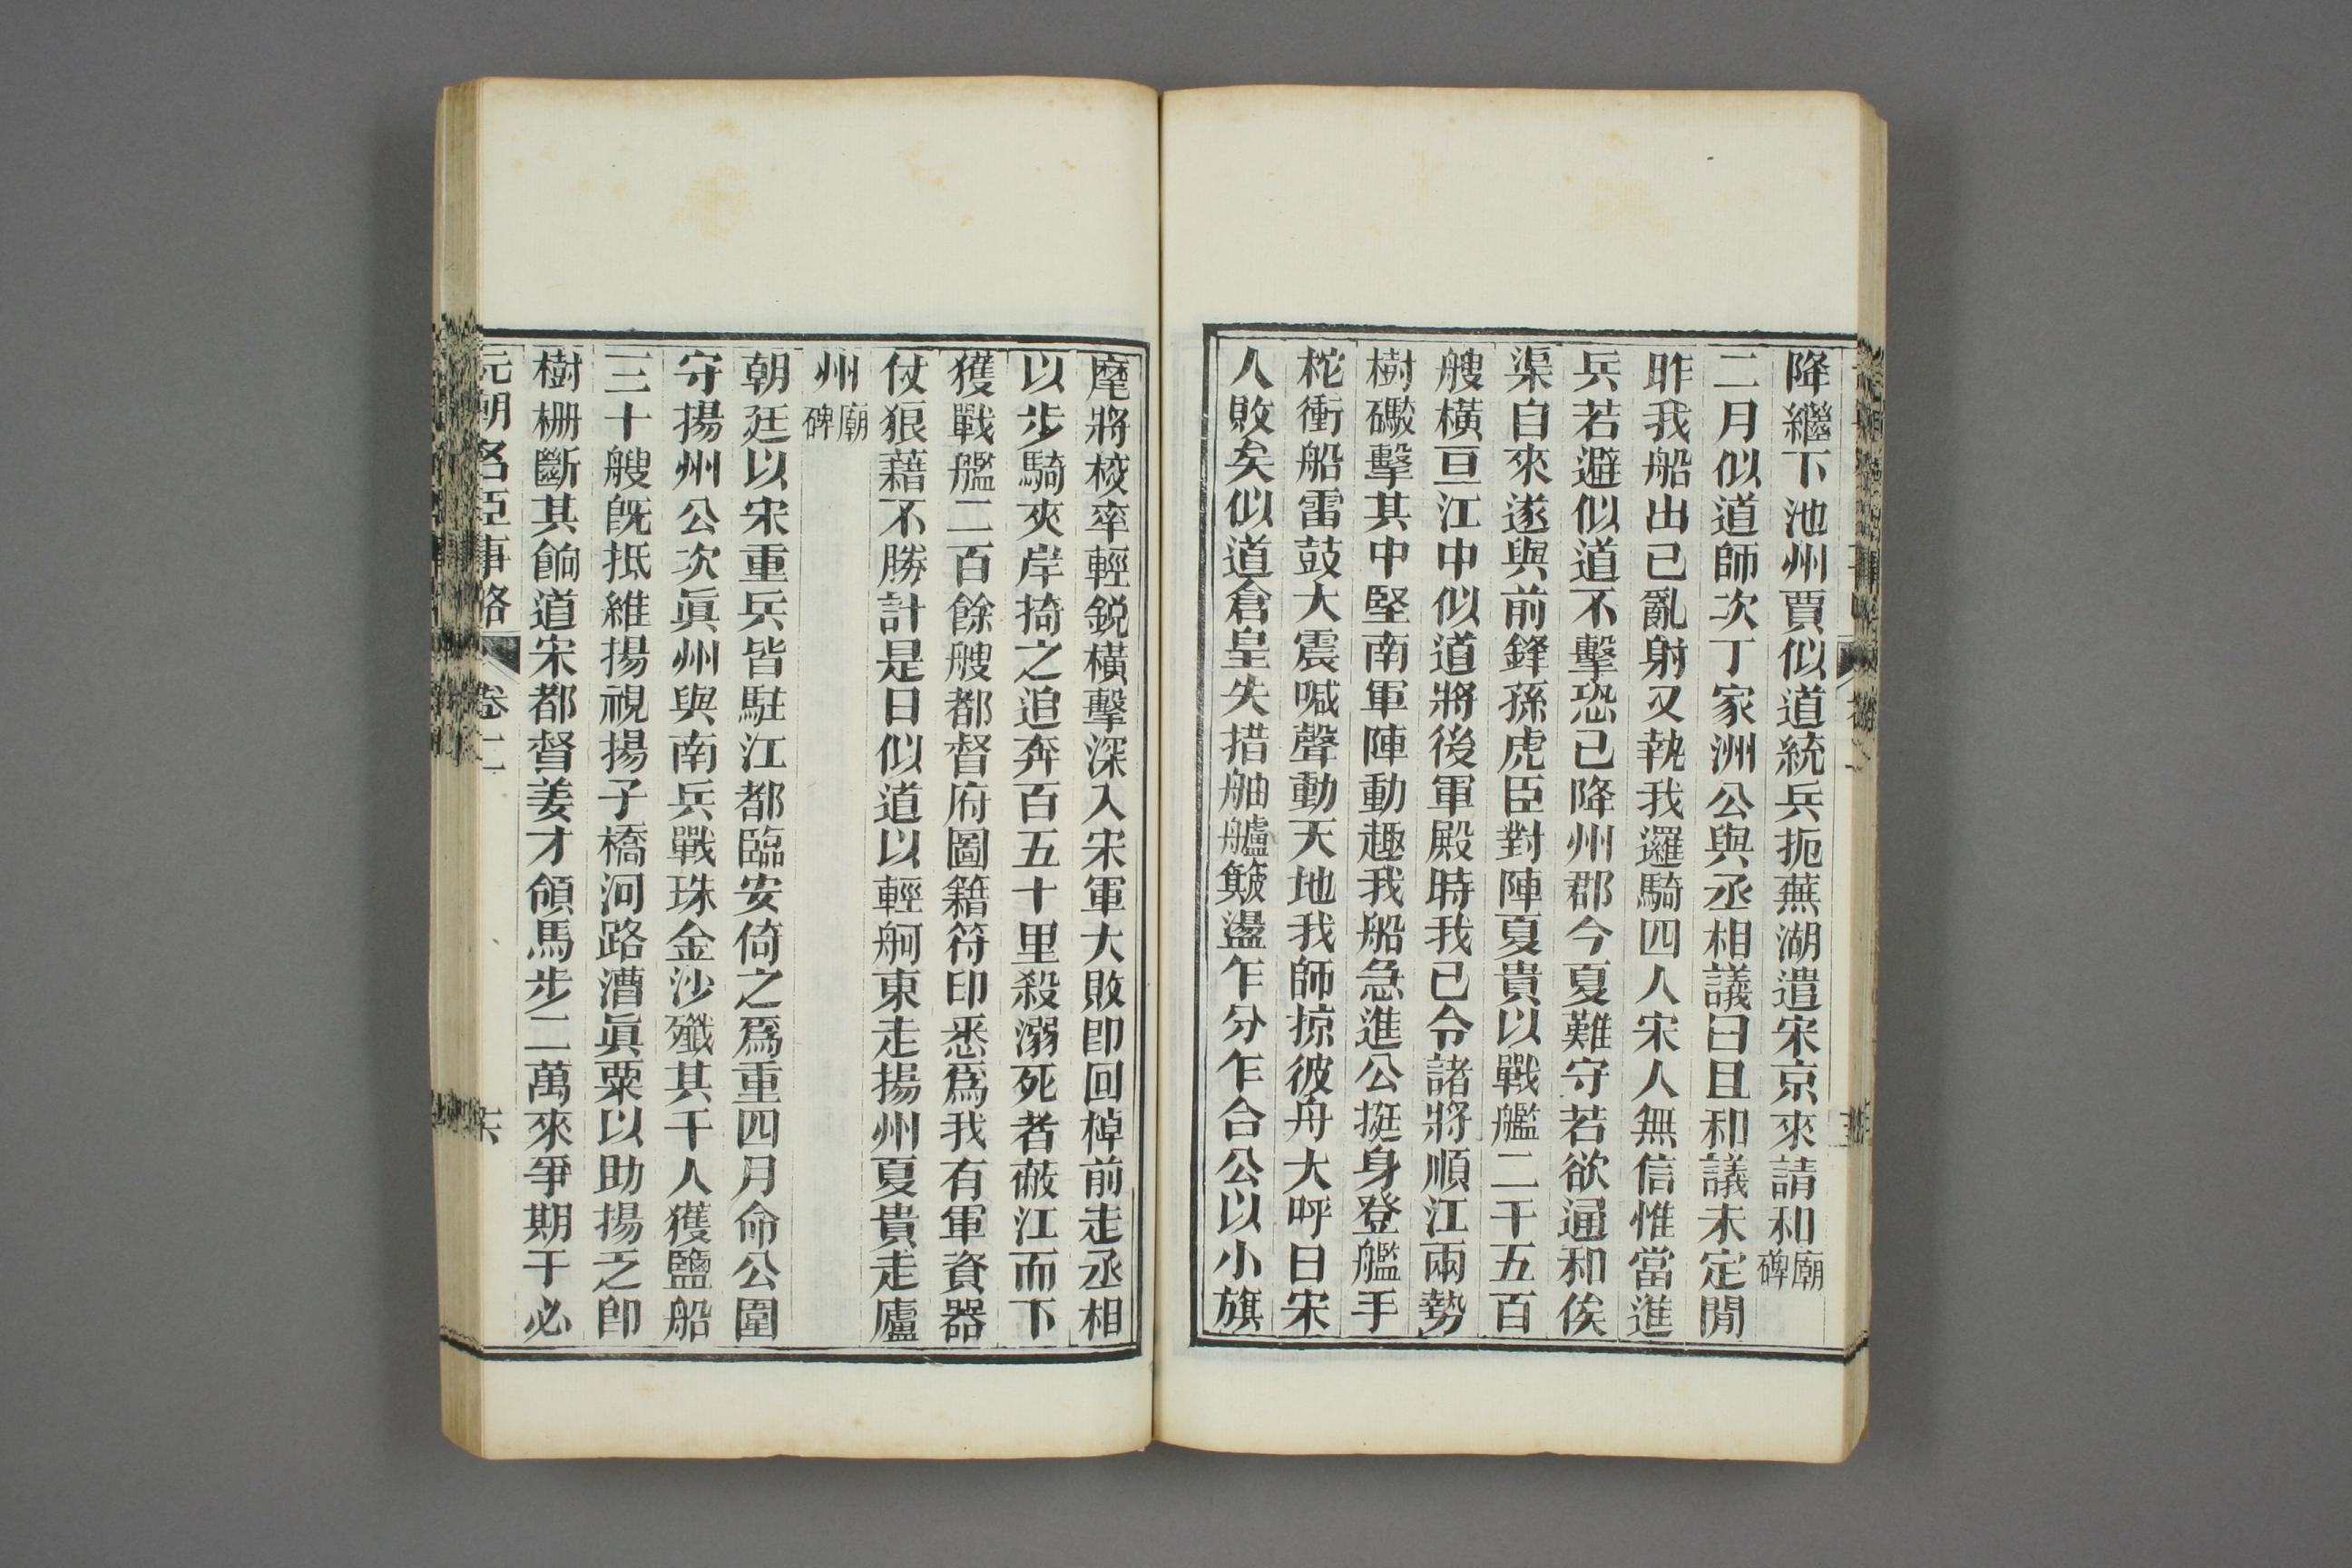 降繼下池州賈似道統兵扼蕪湖遣宋京來請和廟碑
二月似道師次丁家洲公與丞相議曰且和議未定閒
昨我船出已亂射又執我邏騎四人宋人無信惟當進
兵若避似道不擊恐已降州郡今夏難守若欲通和俟
渠自來遂與前鋒孫虎臣對陣夏貴以戰艦二千五百
艘橫亘江中似道將後軍殿時我已令諸將順江兩勢
樹礮擊其中堅南軍陣動趣我船急進公挺身登艦手
柁衝船雷鼓大震喊聲動天地我師掠彼舟大呼曰宋
人敗矣似道倉皇失措舳艫簸盪乍分乍合公以小旗
麾將校率輕銳橫擊深入宋軍大敗卽回棹前走丞相
以步騎夾岸掎之追奔百五十里殺溺死者蔽江而下
獲戰艦二百餘艘都督府圖籍符印悉爲我有軍資器
仗狼藉不勝計是日似道以輕舸東走揚州夏貴走廬
州廟碑
朝廷以宋重兵皆駐江都臨安倚之爲重四月命公圍
守揚州公次眞州與南兵戰珠金沙殲其千人獲鹽船
三十艘旣抵維揚視揚子橋河路漕眞粟以助揚之卽
樹柵斷其餉道宋都督姜才領馬步二萬來爭期于必
元朝名臣事略 卷二 六